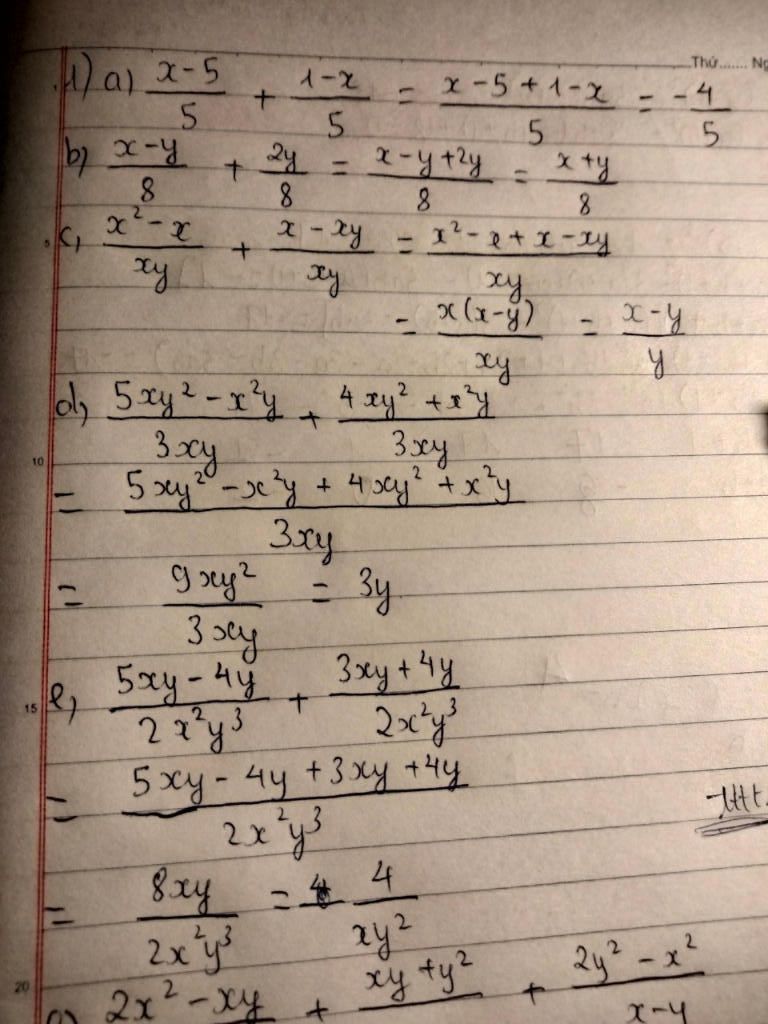 Thứ...... Ng
1) a) \frac{x-5}{5} + \frac{1-x}{5} = \frac{x-5+1-x}{5} = -\frac{4}{5}
b) \frac{x-y}{8} + \frac{2y}{8} = \frac{x-y+2y}{8} = \frac{x+y}{8}
5 c) \frac{x^2-x}{xy} + \frac{x-xy}{xy} = \frac{x^2-x+x-xy}{xy}
= \frac{x(x-y)}{xy} = \frac{x-y}{y}
d) \frac{5xy^2-x^2y}{3xy} + \frac{4xy^2+x^2y}{3xy}
10
= \frac{5xy^2-x^2y+4xy^2+x^2y}{3xy}
= \frac{9xy^2}{3xy} = 3y
15 e) \frac{5xy-4y}{2x^2y^3} + \frac{3xy+4y}{2x^2y^3}
= \frac{5xy-4y+3xy+4y}{2x^2y^3}
= \frac{8xy}{2x^2y^3} = \frac{4}{xy^2}
20 2x^2-xy + xy+y^2 + \frac{2y^2-x^2}{x-y}